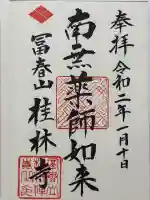 奉拝 令和二年一月十日
南無薬師如来
冨春山 桂林寺